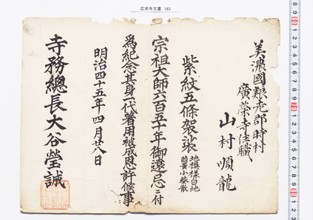 美濃國惠那郡時村
廣榮寺住職
山村順龍
紫紋五條袈裟
地模様白地
宗祖大師六百五十年御遠忌ニ付
為紀念其身一代著用被成恩許候事
明治四十五年四月廿八日
寺務總長大谷瑩誠